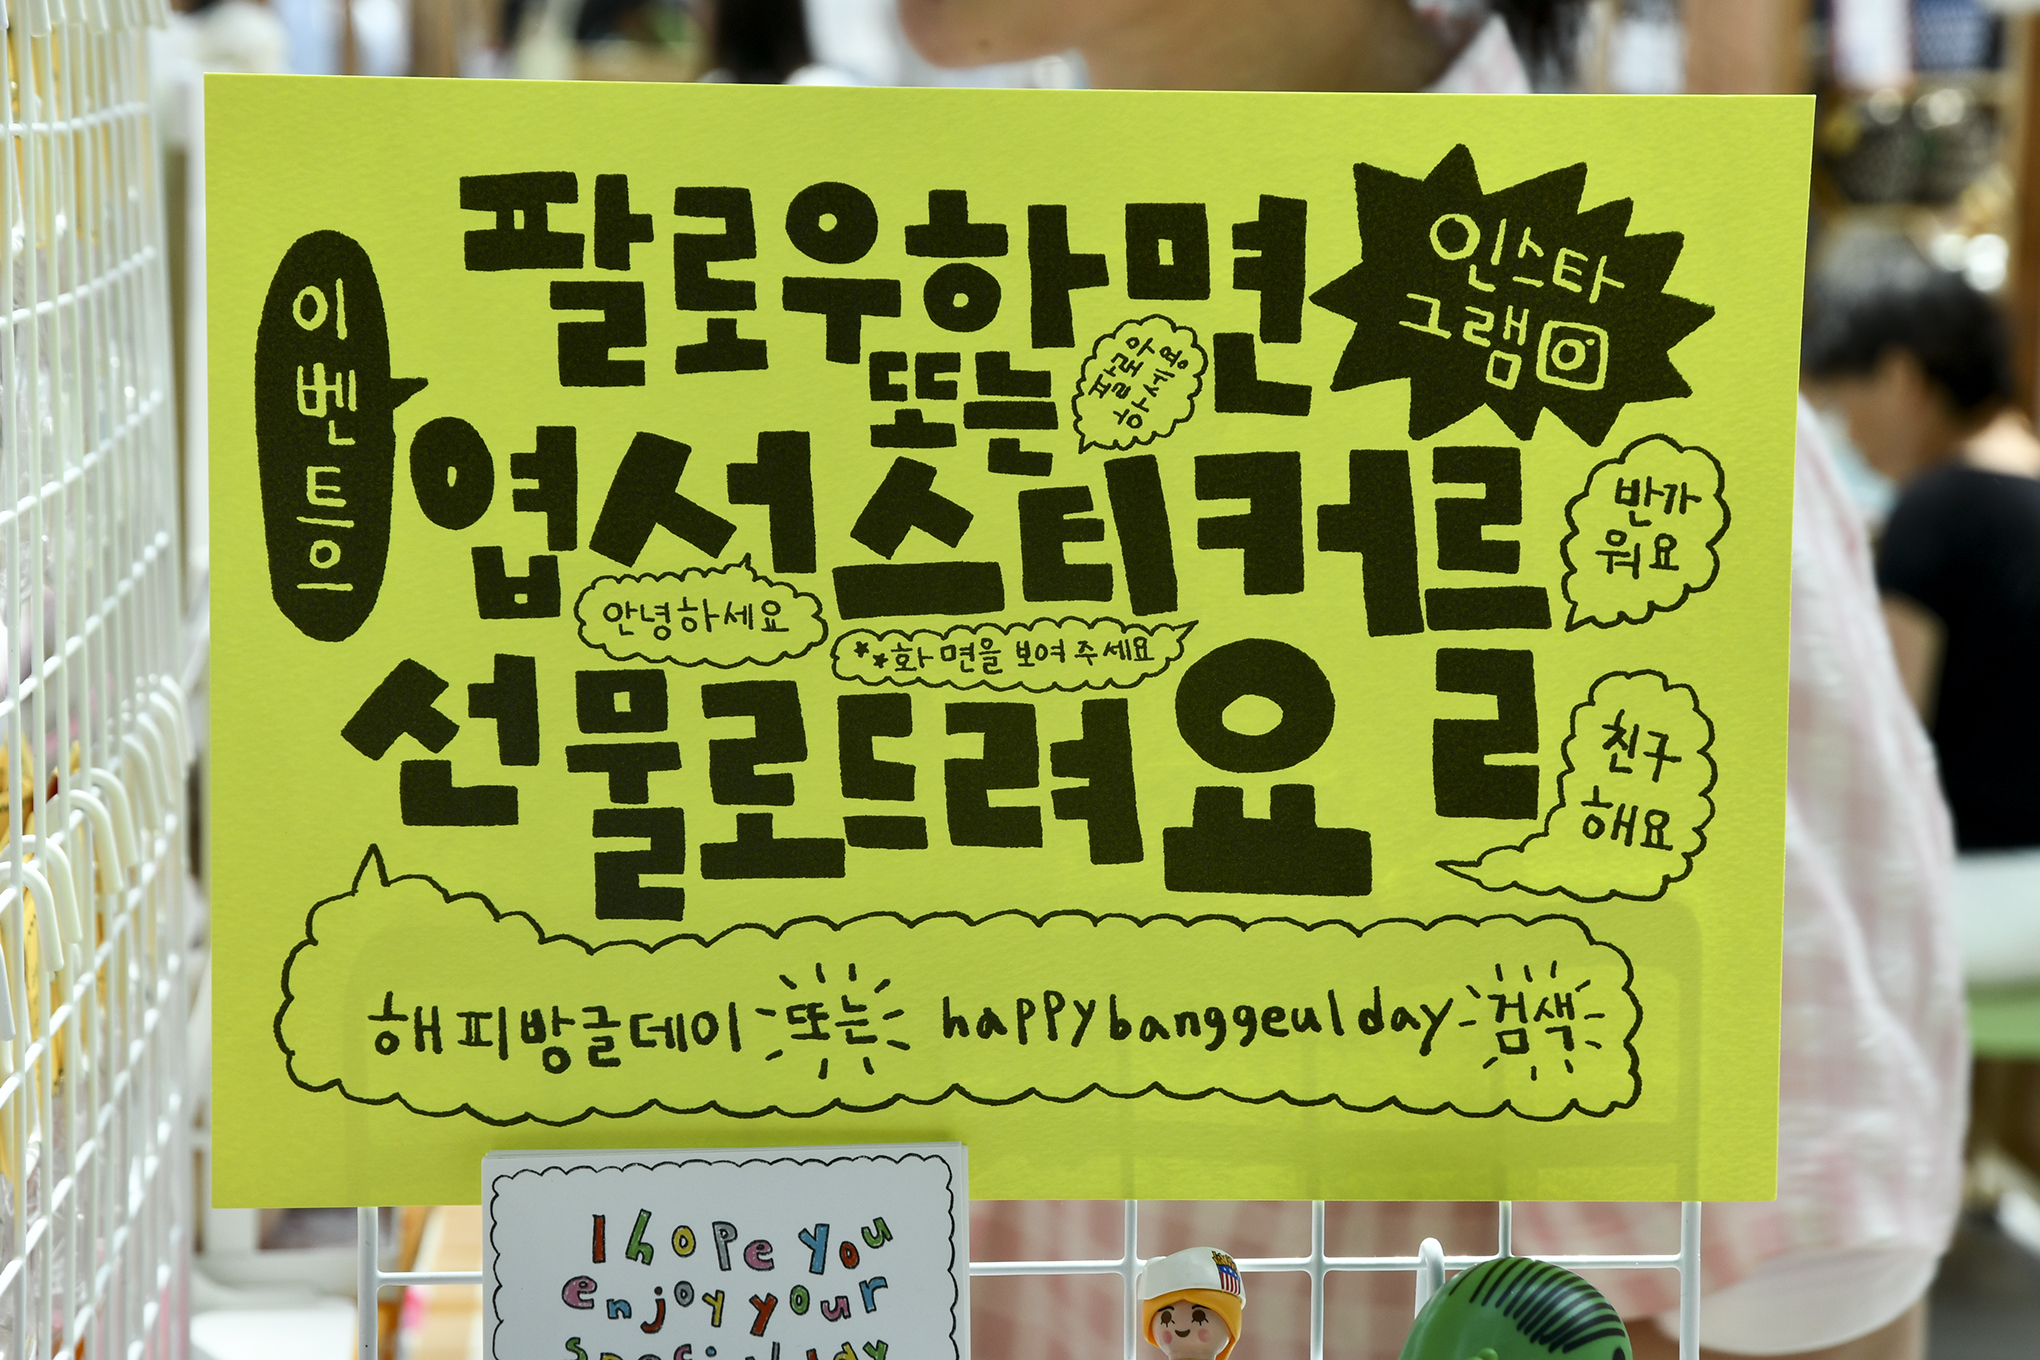 이벤트으
팔로우하면
인스타
그램
또는
엽서 스티커르
를
선물로드려요
안녕하세요
**화면을 보여주세요
반가
워요
친구
해요
해피방글데이 또는 happybanggeulday 검색
I hope you
enjoy your